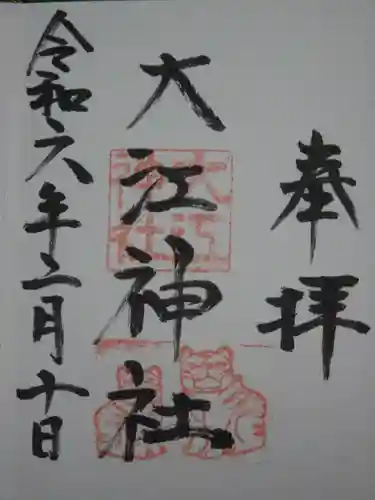 奉拝
大江神社
大江
神社
令和六年二月十日